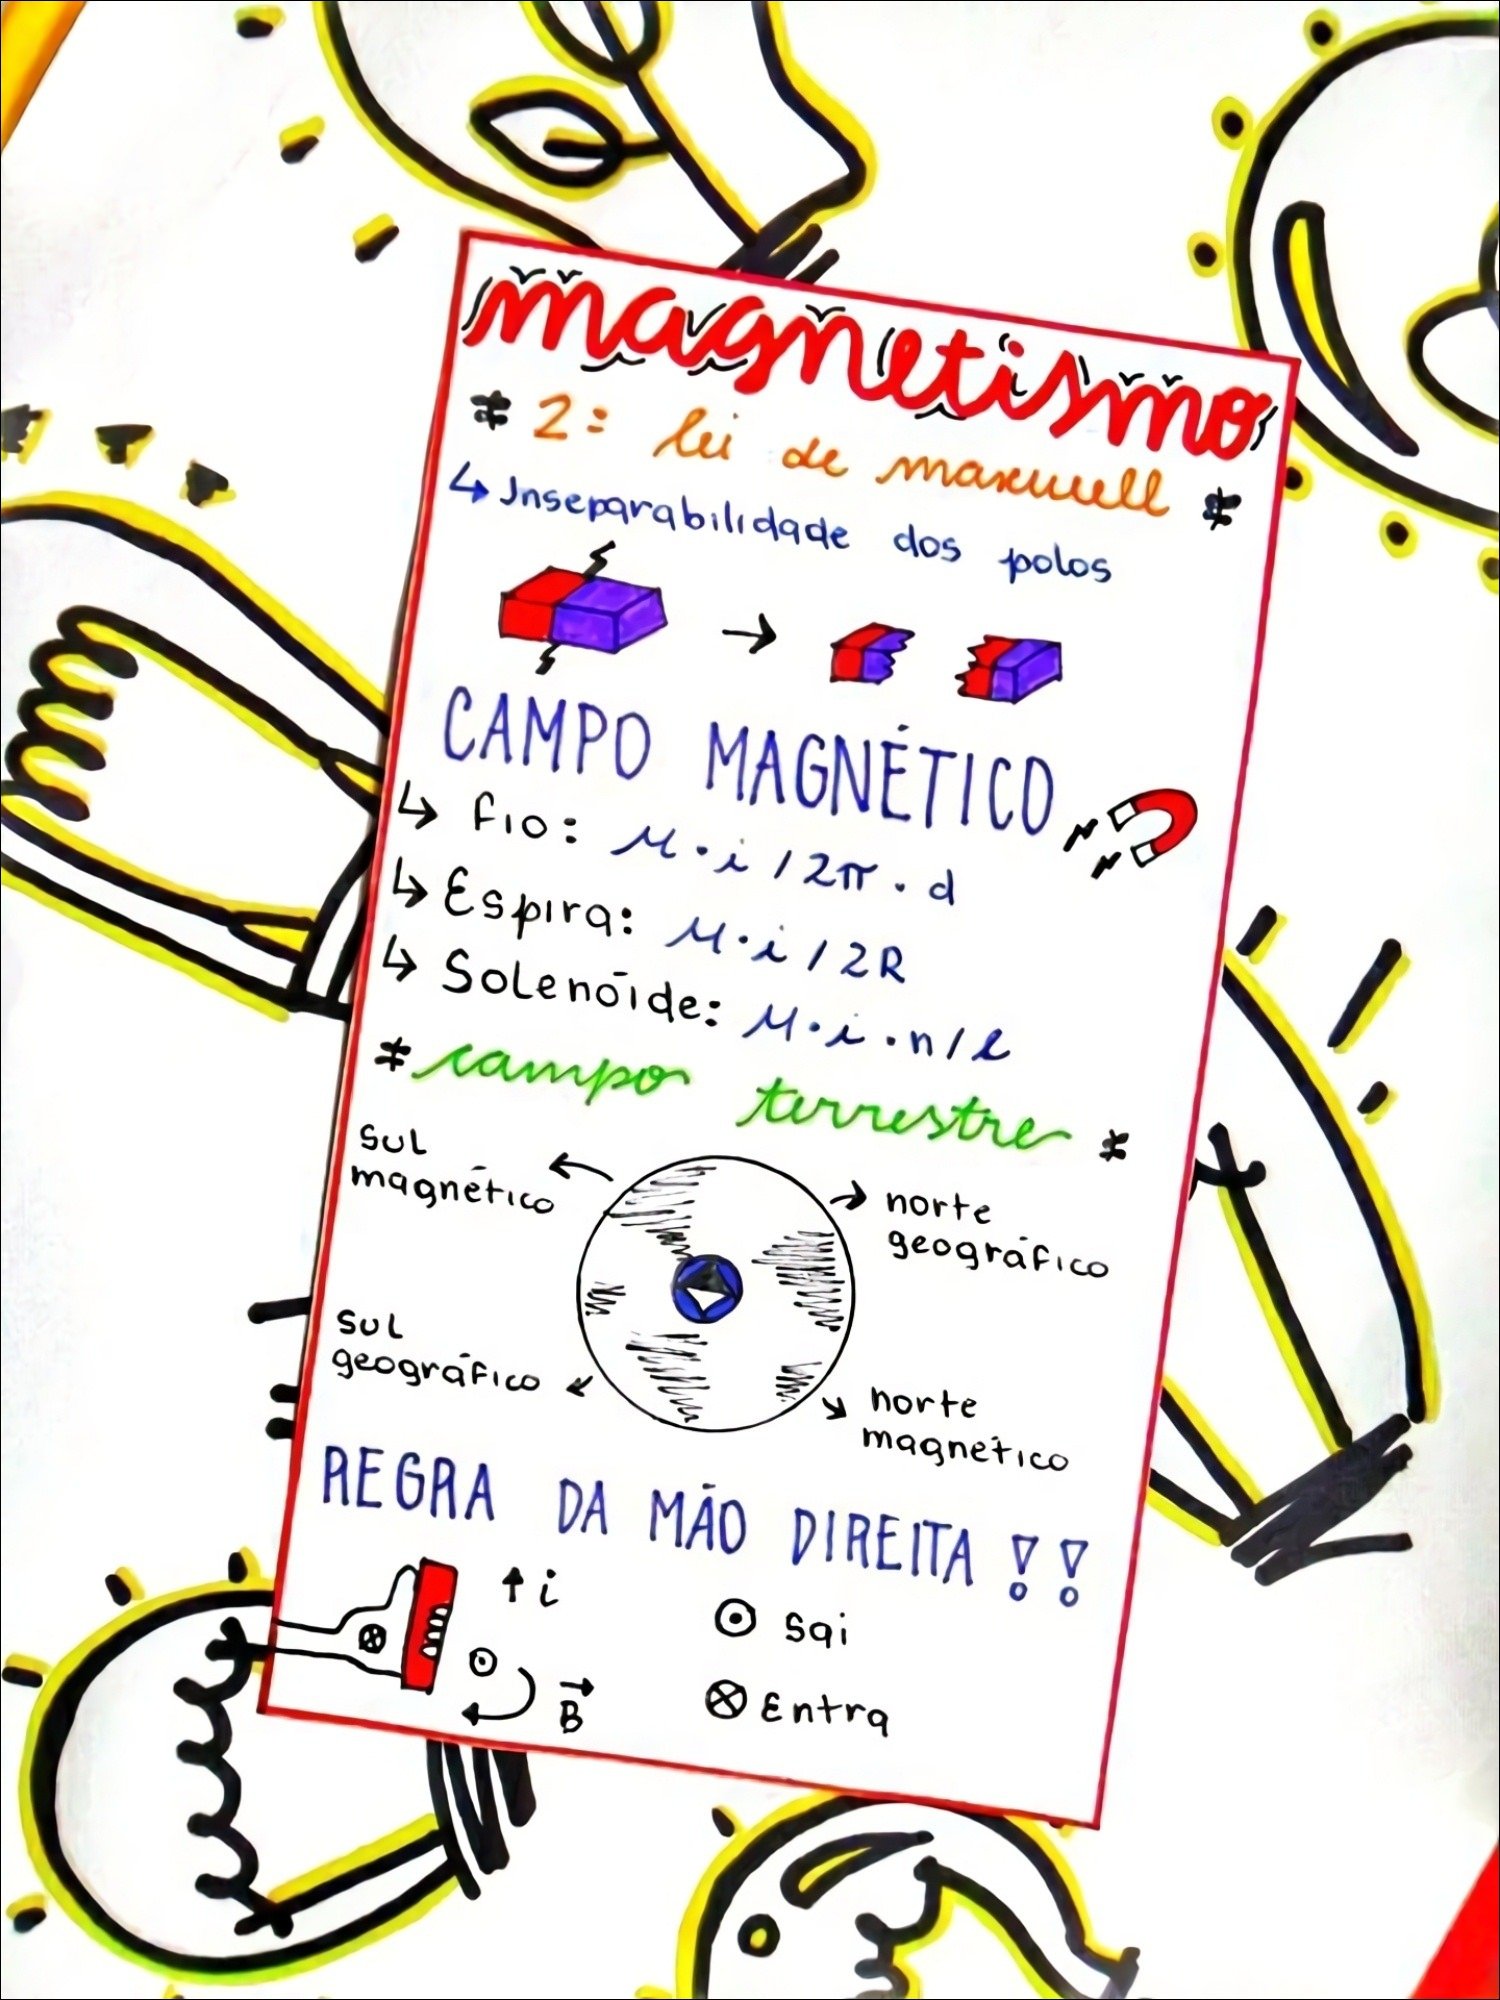 magnetismo
* 2ª lei de maxwell *
↳ Inseparabilidade dos polos
→
CAMPO MAGNÉTICO
↳ fio: μ·i / 2π . d
↳ Espira: μ·i / 2R
↳ Solenóide: μ·i·n / l
* campo terrestre *
sul
magnético
norte
geográfico
sul
geográfico
norte
magnético
REGRA DA MÃO DIREITA!!
↑ i
⊙ Sai
B
⊗ Entra